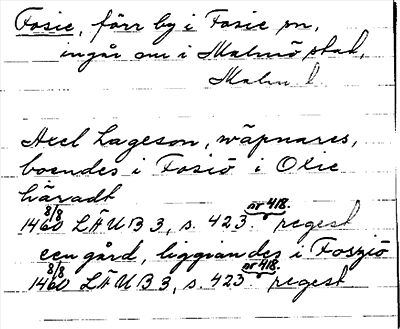 Fosie, förr by i Fosie sn,
ingår nu i Malmö stad,
Malm l.
Axel Lageson, wäpnares,
boendes i Fosiö i Oxie
häradt
8/8 1460 LÄUB 3, s. 423. nr 418. regest
een gård, liggiandes i Fosziö
8/8 1460 LÄUB 3, s. 423. nr 418. regest